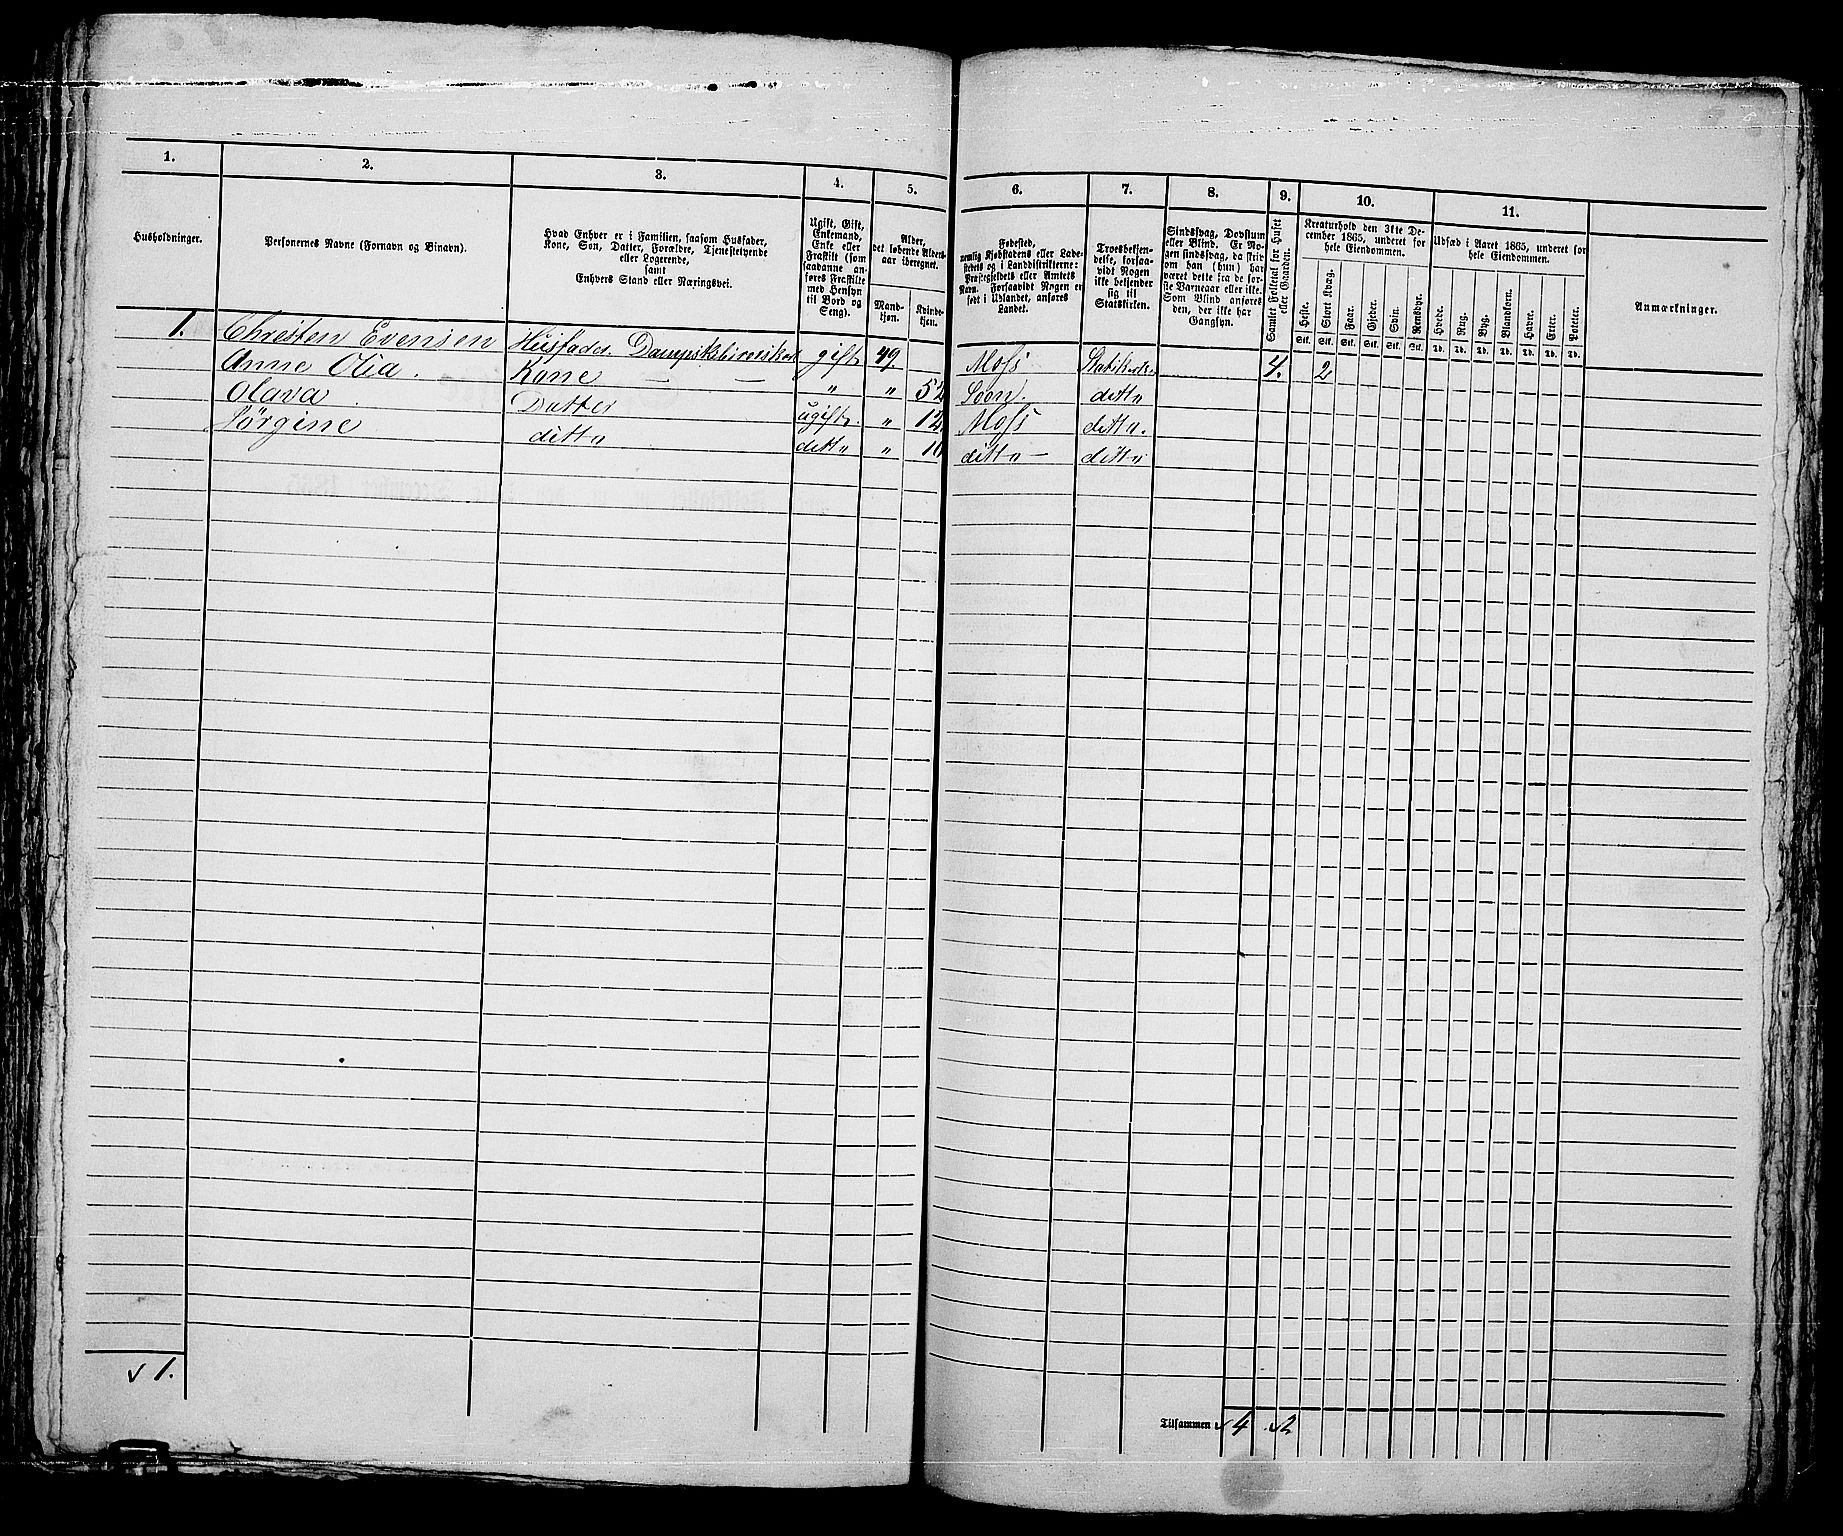 1. 2. 3. 4. 5. 6. 7. 8. 9. 10. 11.
Husholdninger.
Personernes Navne (Fornavn og Binavn).
Hvad Enhver er i Familien, saasom Husfader,
Kone, Søn, Datter, Forældre, Tjenestetyende
eller Logerende,
samt
Enhvers Stand eller Næringsvei.
Ugift, Gift,
Enkemand,
Enke eller
Fraskilt (som
saadanne an-
føres Fraskilte
med Hensyn
til Bord og
Seng).
Alder,
det løbende Alders-
aar iberegnet.
Mand-
kjøn.
Kvinde-
kjøn.
Fødested,
nemlig Kjøbstadens eller Lade-
stedets og i Landdistrikterne:
Præstegjeldets eller Amtets
Navn. Forsaavidt Nogen er
født i Udlandet, anføres
Landet.
Troesbekjen-
delse, forsaa-
vidt Nogen
ikke bekjender
sig til
Statskirken.
Sindssvag, Døvstum
eller Blind. Er No-
gen sindssvag, da skriv
om han (hun) har
været dette fra de før-
ste Barneaar eller ikke.
Som Blind anføres
den, der ikke har
Gangsyn.
Samlet Folketal for Huset
eller Gaarden.
Kreaturhold den 31te De-
cember 1865, underet for
hele Eiendommen.
Heste. Stort Kvæg. Faar. Gjeder. Svin. Rensdyr.
Stk. Stk. Stk. Stk. Stk. Stk.
Udsæd i Aaret 1865, underet for
hele Eiendommen.
Hvede. Rug. Byg. Blandkorn. Havre. Erter. Poteter.
Td. Td. Td. Td. Td. Td. Td.
Anmærkninger.
1. Christen Evensen Husfader. gift 49. Moss 4. 2
Anne Olia. Kone — — " " 52 Soon. ditto
Olava Datter ugift. " 12 Moss ditto.
Jørgine ditto ditto " ditto — ditto
√ 1.
Tilsammen √ 4 √2